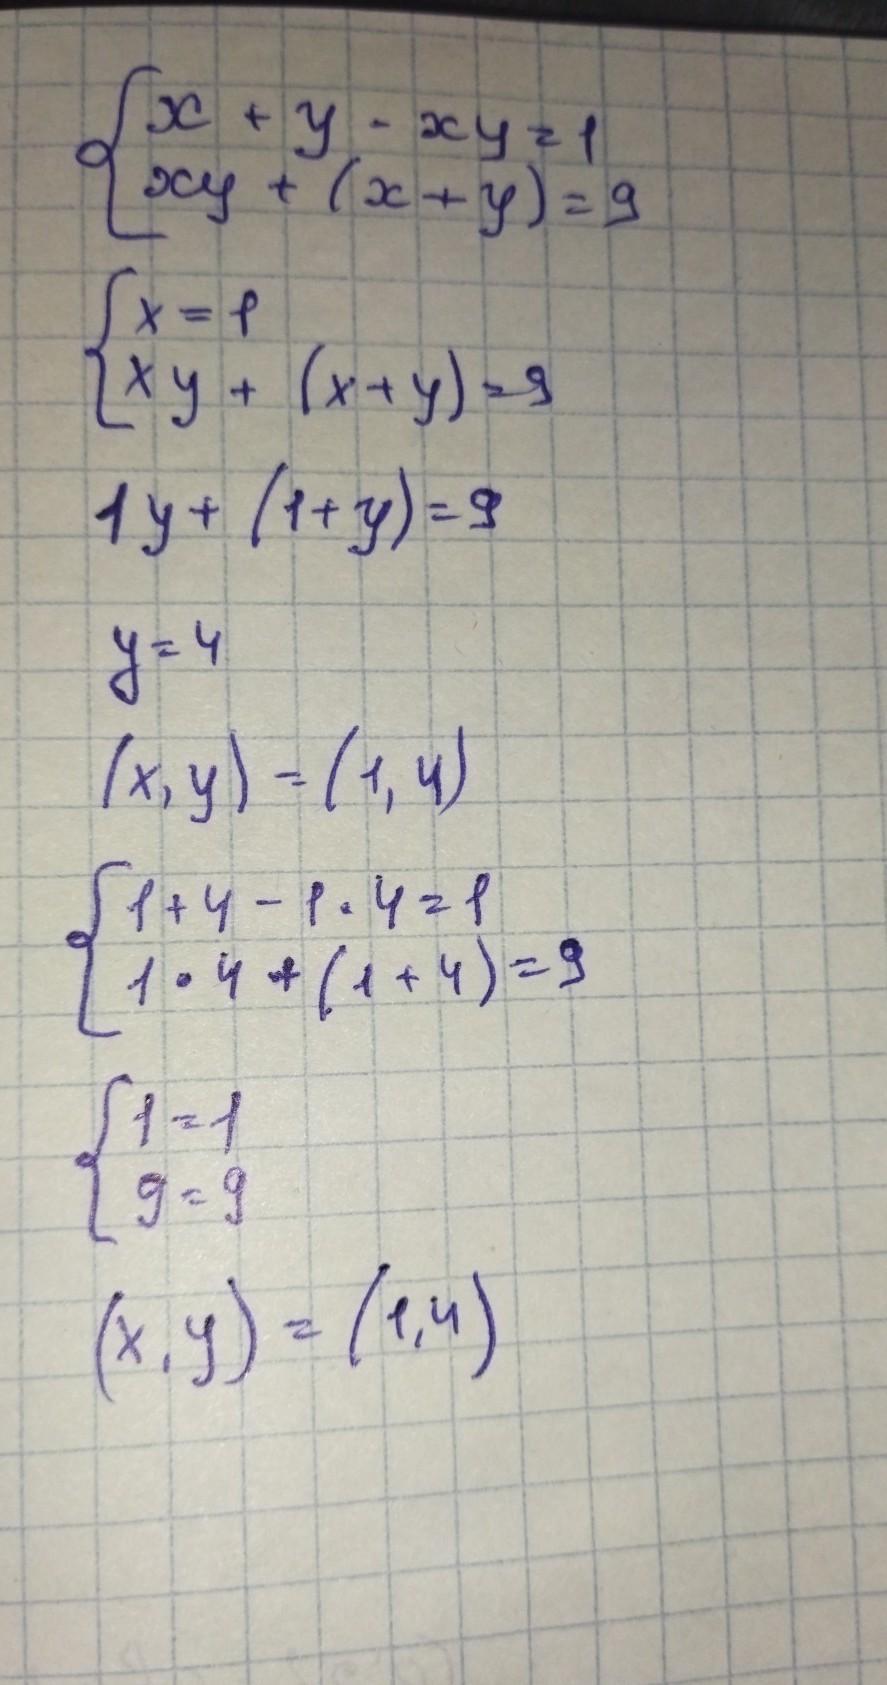 x + y - xy = 1
xy + (x + y) = 9
x = 1
xy + (x + y) = 9
1y + (1 + y) = 9
y = 4
(x, y) = (1, 4)
1 + 4 - 1 · 4 = 1
1 · 4 + (1 + 4) = 9
1 = 1
9 = 9
(x, y) = (1, 4)